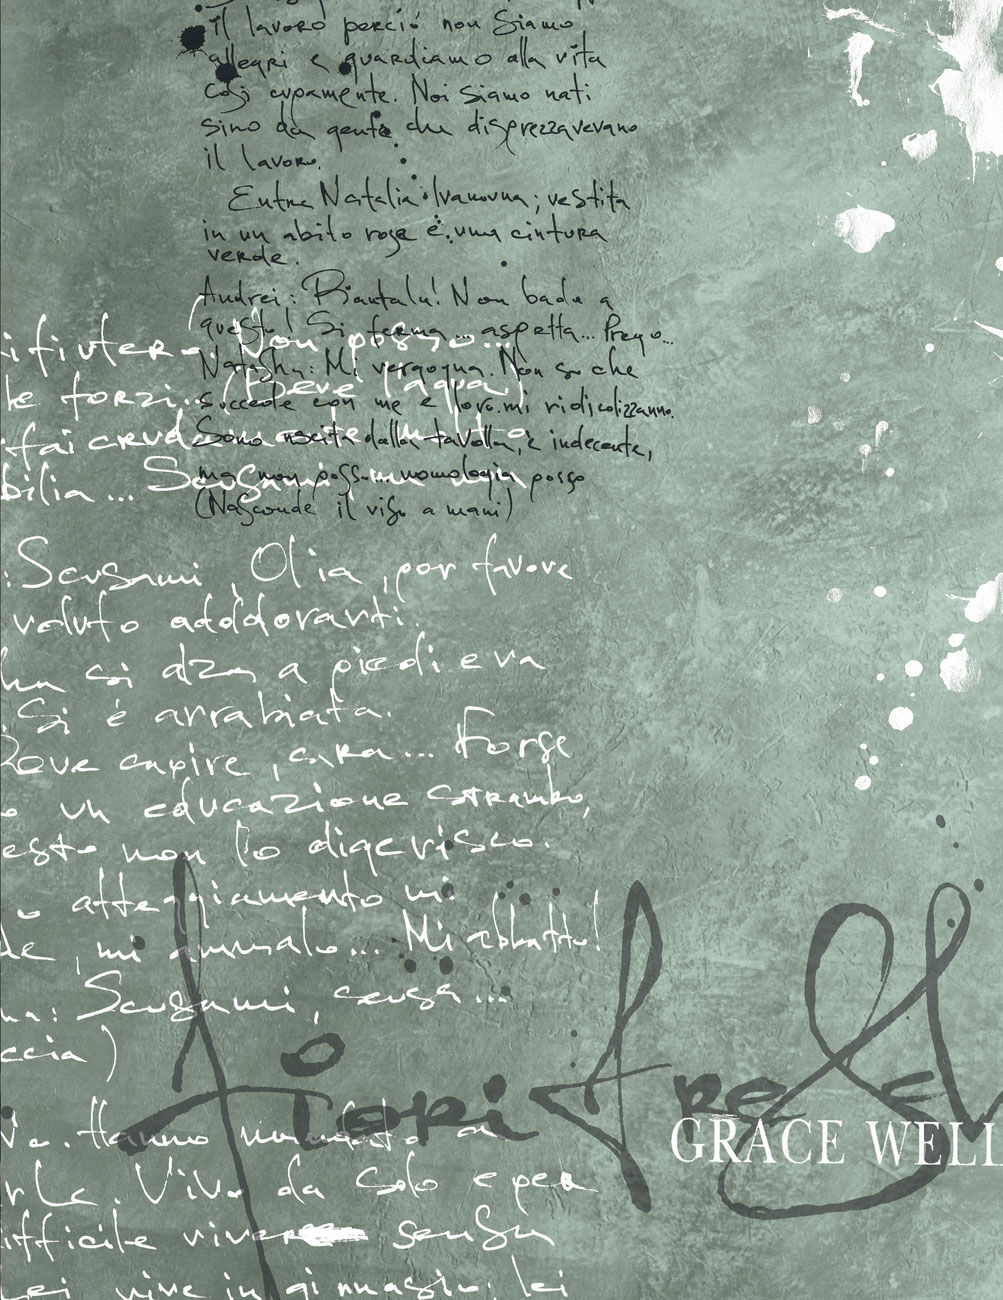 il lavoro perció non siamo
allegri e guardiamo alla vita
così cupamente. Noi siamo nati
sino da gente che disprezzavevano
il lavoro.
Entra Natalia Ivanovna; vestita
in un abito rosa e una cintura
verde.
Andrei: Non bada a
questo! Si ferma... aspetta... Prego...
Natasha: Mi vergogna. Non so che
succede con me e loro mi ridicolizzanno.
Sono uscita dalla tavolla, è indecente,
ma non posso... posso
(Nasconde il viso a mani)
Non posso...
le forzi... (Beve l'aqua)
ifai crudamente molto
bilia... Scusami,
: Scusami, Olia, por favore
voluto adddoranti.
si alza a piedi e va
. Si è arrabiata.
Deve capire, cara... Forse
o un educazione strambo,
esto non lo digerisco.
o atteggiamento mi
de, mi ammalo... Mi abbatto!
na: Scusami, scusa...
ccia)
Fiori
GRACE WELL
Hanno
rle. Vivo da solo e per
ifficile vivere senso
Lei vive in gimnasio; lei